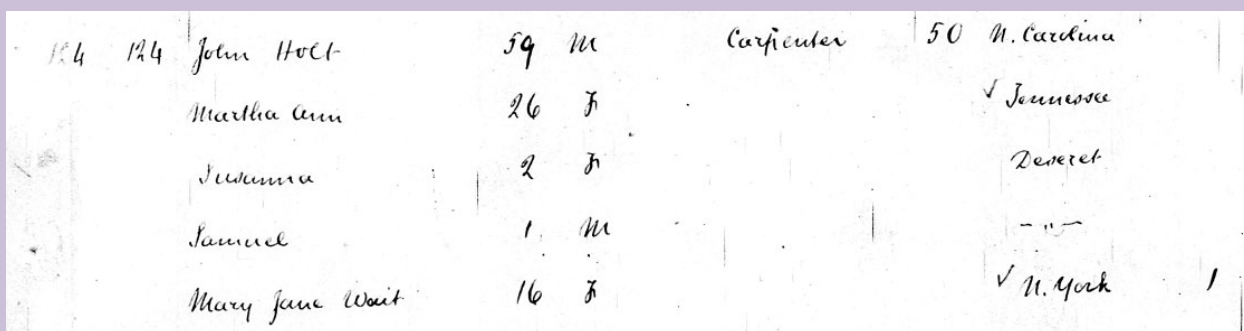 124 124 John Holt 59 M Carpenter 50 N. Carolina
Martha Ann 26 F ✓ Tennessee
Susanna 2 F Deseret
Samuel 1 M — " —
Mary Jane Wait 16 F ✓ N. York 1